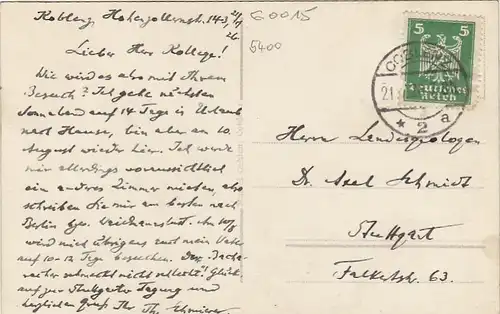 Koblenz, Hohenzollernstr. 143,
21/7
26.
Lieber Herr Kollege!
Wie wird es also mit Ihrem
Besuch? Ich gehe nächsten
Sonnabend auf 14 Tage in Urlaub
nach Hause, bin aber am 10.
August wieder hier. Ich werde
mir allerdings voraussichtlich
ein anderes Zimmer mieten, also
schreiben Sie mir am besten nach
Berlin
wird mich übrigens mein Vater
auf 10-12 Tage besuchen.
nicht Glück
auf zur Stuttgarter Tagung und
herzlichen Gruß Ihr Th. Schmierer
G0015
5400
5 5
Deutsches
Reich
COBLENZ
21
* 2 a
Herrn Landesgeologen
Dr. Axel Schmidt
Stuttgart
Falkertstr. 63.